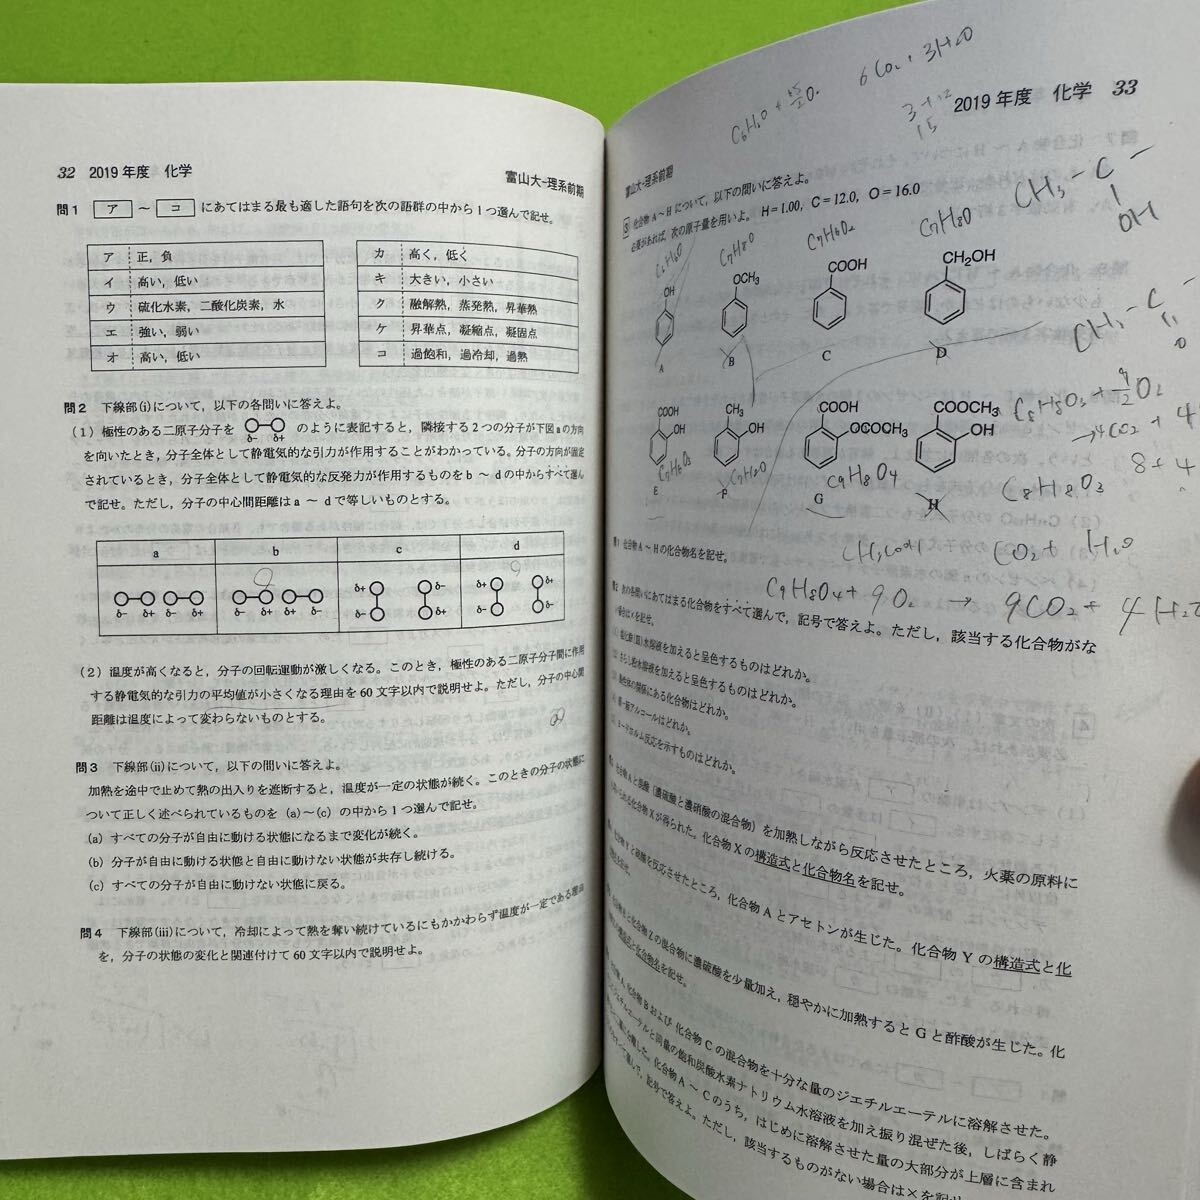 32 2019年度 化学
富山大-理系前期
問1 ア ~ コ にあてはまる最も適した語句を次の語群の中から1つ選んで記せ。
ア 正，負
イ 高い，低い
ウ 硫化水素，二酸化炭素，水
エ 強い，弱い
オ 高い，低い
カ 高く，低く
キ 大きい，小さい
ク 融解熱，蒸発熱，昇華熱
ケ 昇華点，凝縮点，凝固点
コ 過飽和，過冷却，過熱
問2 下線部(i)について，以下の各問いに答えよ。
(1) 極性のある二原子分子を δ- δ+ のように表記すると，隣接する2つの分子が下図aの方向
を向いたとき，分子全体として静電気的な引力が作用することがわかっている。分子の方向が固定
されているとき，分子全体として静電気的な反発力が作用するものをb～dの中からすべて選ん
で記せ。ただし，分子の中心間距離はa～dで等しいものとする。
a b c d
δ- δ+ δ- δ+
δ- δ+ δ+ δ-
δ+ δ- δ- δ+
δ+ δ- δ+ δ-
(2) 温度が高くなると，分子の回転運動が激しくなる。このとき，極性のある二原子分子間に作用
する静電気的な引力の平均値が小さくなる理由を60文字以内で説明せよ。ただし，分子の中心間
距離は温度によって変わらないものとする。
問3 下線部(ii)について，以下の問いに答えよ。
加熱を途中で止めて熱の出入りを遮断すると，温度が一定の状態が続く。このときの分子の状態に
ついて正しく述べられているものを(a)～(c)の中から1つ選んで記せ。
(a) すべての分子が自由に動ける状態になるまで変化が続く。
(b) 分子が自由に動ける状態と自由に動けない状態が共存し続ける。
(c) すべての分子が自由に動けない状態に戻る。
問4 下線部(iii)について，冷却によって熱を奪い続けているにもかかわらず温度が一定である理由
を，分子の状態の変化と関連付けて60文字以内で説明せよ。
6CO2 + 3H2O
2019年度 化学 33
富山大-理系前期
3 化合物A～Hについて，以下の問いに答えよ。
必要があれば，次の原子量を用いよ。H=1.00，C=12.0，O=16.0
CH3 - C -
OH
C6H6O
C7H8O
C7H6O2
C7H8O
OH
OCH3
COOH
CH2OH
A B C D
CH3 - C -
O
COOH
OH
CH3
OH
COOH
OCOCH3
COOCH3
OH
C7H6O3
C7H8O
C9H8O4
C8H8O3
E F G H
CH3COOH
CO2 + H2O
C9H8O4 + 9O2 → 9CO2 + 4H2O
問1 化合物A～Hの化合物名を記せ。
問2 次の各問いにあてはまる化合物をすべて選んで，記号で答えよ。ただし，該当する化合物がな
い場合は×を記せ。
(1) 塩化鉄(III)水溶液を加えると呈色するものはどれか。
(2) さらし粉水溶液を加えると呈色するものはどれか。
(3) 異性体の関係にある化合物はどれか。
(4) 第一級アルコールはどれか。
(5) ヨードホルム反応を示すものはどれか。
化合物Aと混酸（濃硫酸と濃硝酸の混合物）を加熱しながら反応させたところ，火薬の原料に
用いられる化合物Xが得られた。化合物Xの構造式と化合物名を記せ。
化合物Yと硫酸を反応させたところ，化合物Aとアセトンが生じた。化合物Yの構造式と化
合物名を記せ。
化合物Eと化合物Zの混合物に濃硫酸を少量加え，穏やかに加熱するとGと酢酸が生じた。化
合物Zの構造式と化合物名を記せ。
化合物A，化合物Bおよび化合物Cの混合物を十分な量のジエチルエーテルに溶解させた。
ジエチルエーテルと同量の飽和炭酸水素ナトリウム水溶液を加え振り混ぜた後，しばらく静
化合物A～Cのうち，はじめに溶解させた量の大部分が上層に含まれ
記号で答えよ。ただし，該当するものがない場合は×を記せ